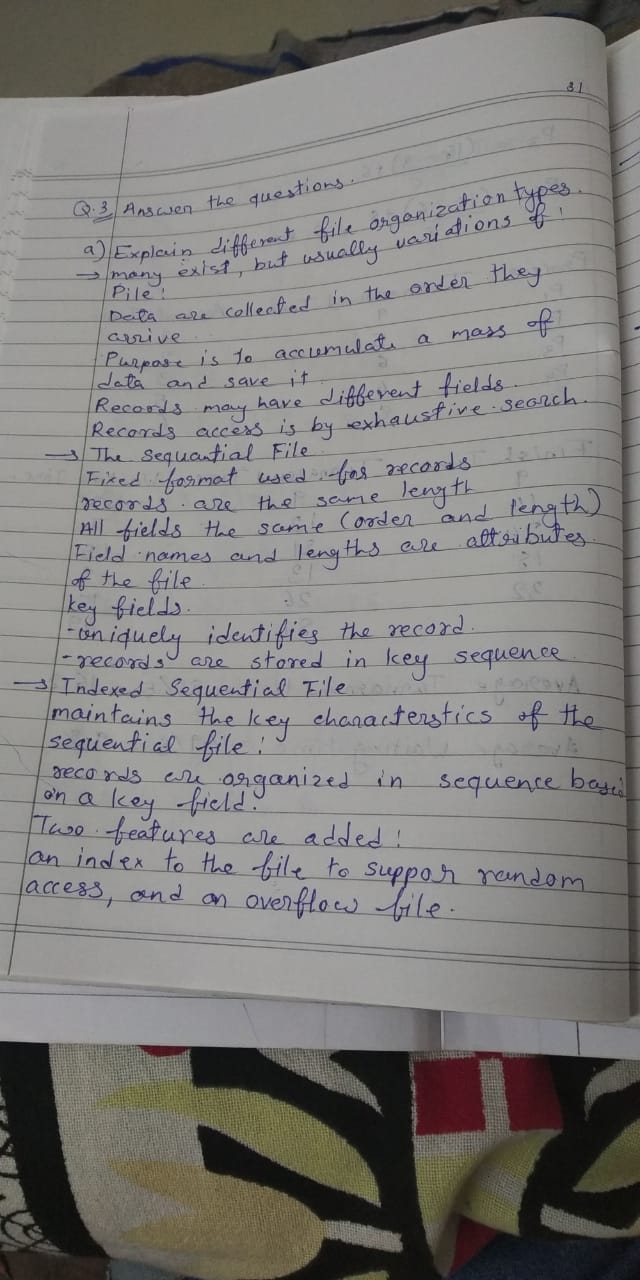 31
Q.3 Answer the questions.
a) Explain different file organization types.
→ many exist, but usually variations of :
Pile :
Data are collected in the order they
arrive
Purpose is to accumulate a mass of
data and save it
Records may have different fields.
Records access is by exhaustive search.
→ The Sequential File
Fixed format used for records
records are the same length
All fields the same (order and length)
Field names and lengths are attributes
of the file
key fields.
- uniquely identifies the record.
- records are stored in key sequence
→ Indexed Sequential File
maintains the key characterstics of the
sequential file :
records are organized in sequence based
on a key field.
Two features are added :
an index to the file to suppor random
access, and an overflow file.